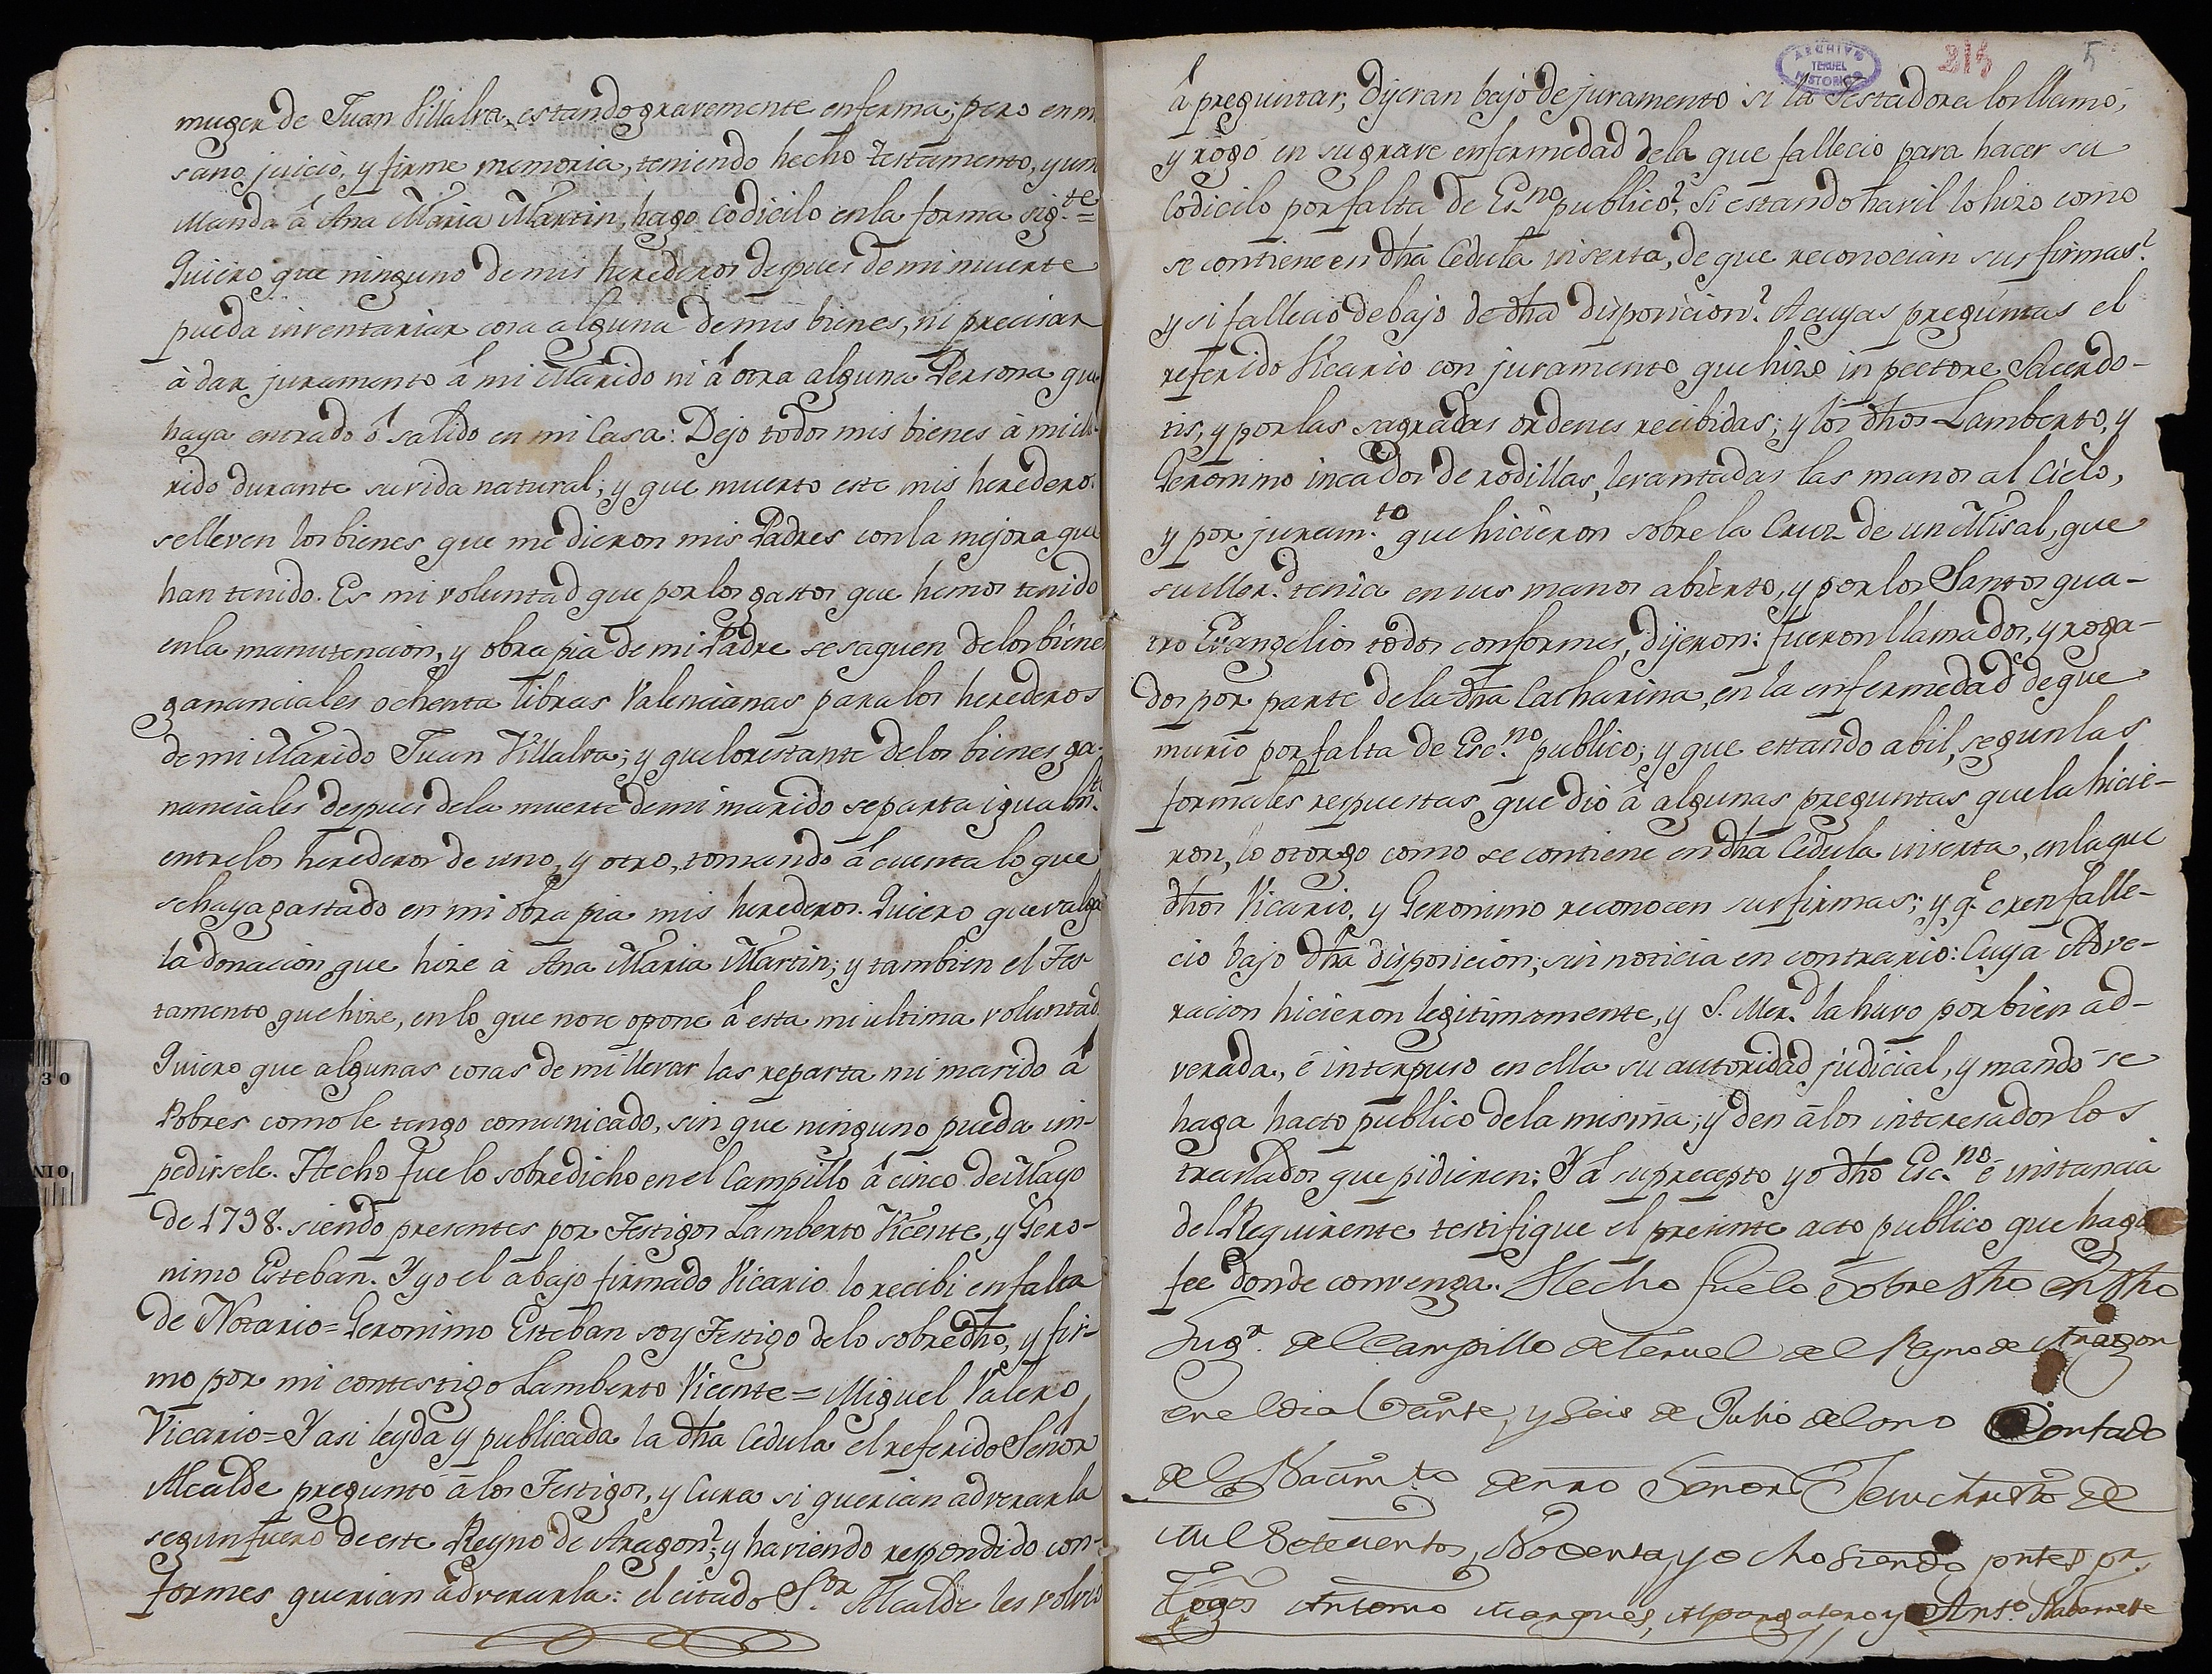 muger de Juan Villalva, estando gravemente enferma; pero en m
sano juicio, y firme memoria, teniendo hecho testamento, y una
Manda â Ana Maria Martin, hago codicilo en la forma sig.te =
Quiero que ninguno de mis herederos despues de mi muerte
pueda inventariar cosa alguna de mis bienes, ni precisar
à dar juramento â mi Marido ni â otra alguna Persona que
haya entrado ô salido en mi Casa: Dejo todos mis bienes à mi Ma-
rido durante su vida natural; y que muerto este mis herederos
se lleven los bienes que me dieron mis Padres con la mejora que
han tenido. Es mi voluntad que por los gastos que hemos tenido
en la manutencion, y obra pia de mi Padre se saquen de los biene
gananciales ochenta libras Valencianas para los herederos
de mi Marido Juan Villalva; y que lo restante de los bienes ga-
nanciales despues de la muerte de mi marido se parta igualm.te
entre los herederos de uno, y otro, tomando â cuenta lo que
se haya gastado en mi obra pia mis herederos. Quiero que valga
la donacion que hize à Ana Maria Martin; y tambien el Tes-
tamento que hize, en lo que no se opone â esta mi ultima voluntad
Quiero que algunas cosas de mi llevar las reparta mi marido â
Pobres como le tengo comunicado, sin que ninguno pueda im-
pedirsele. Hecho fue lo sobredicho en el Campillo â cinco de Mayo
de 1798. siendo presentes por Testigos Lamberto Vicente, y Gero-
nimo Esteban. Y yo el abajo firmado Vicario lo recibi en falta
de Notario = Geronimo Esteban soy Testigo de lo sobredho, y fir-
mo por mi contestigo Lamberto Vicente = Miguel Valero,
Vicario = Y asi leyda y publicada la dha Cedula el referido Señor
Alcalde preguntó à los Testigos, y Cura si querian adverarla
segun fuero de este Reyno de Aragon?; y haviendo respondido con-
formes querian adverarla: el citado S.or Alcalde les volvió
ARCHIVO HISTORICO TERUEL
214 5
â preguntar, Dijeran bajo de juramento si la Testadora los llamó,
y rogó en su grave enfermedad de la que fallecio para hacer su
Codicilo por falta de Es.no publico?, Si estando havil lo hizo como
se contiene en dha Cedula inserta, de que reconocian sus firmas?
y si fallecio debajo de dha disposicion? A cuyas preguntas el
referido Vicario con juramento que hizo in pectore Sacerdo-
tis, y por las sagradas ordenes recibidas; y los dhos Lamberto, y
Geronimo incados de rodillas, levantadas las manos al Cielo,
y por juram.to que hicieron sobre la Cruz de un Misal, que
su Mer.d tenia en sus manos abierto, y por los Santos qua-
tro Evangelios todos conformes, dijeron: fueron llamados, y roga-
dos por parte de la dha Catharina, en la enfermedad de que
murió por falta de Esc.no publico; y que estando abil, segun las
formales respuestas que dió â algunas preguntas que la hicie-
ron, lo otorgo como se contiene en dha Cedula inserta, en la que
dhos Vicario, y Geronimo reconocen sus firmas; y q.e cren falle-
cio bajo dha disposicion; sin noticia en contrario: Cuya Adve-
racion hicieron legitimamente, y S. Mer.d la huvo por bien ad-
verada, é interpuso en ella su autoridad judicial, y mandó se
haga hacto publico de la misma; y den â los interesados los
traslados que pidieren: Y â su precepto yo dho Esc.no é instancia
del Requirente testifique el presente acto publico que haga
fee donde convenga. Hecho fue lo Sobredho en dho
Lug.r del Campillo de Teruel del Reyno de Aragon
en el dia Veinte, y Seis de Julio del ano Contado
del Nacim.to de nro Señor Jesuchristo de
Mil Setecientos, Noventa, y ocho siendo pntes p.r
Tgos Antonio Marques, Alpargatero y Ant.o Nabarrette